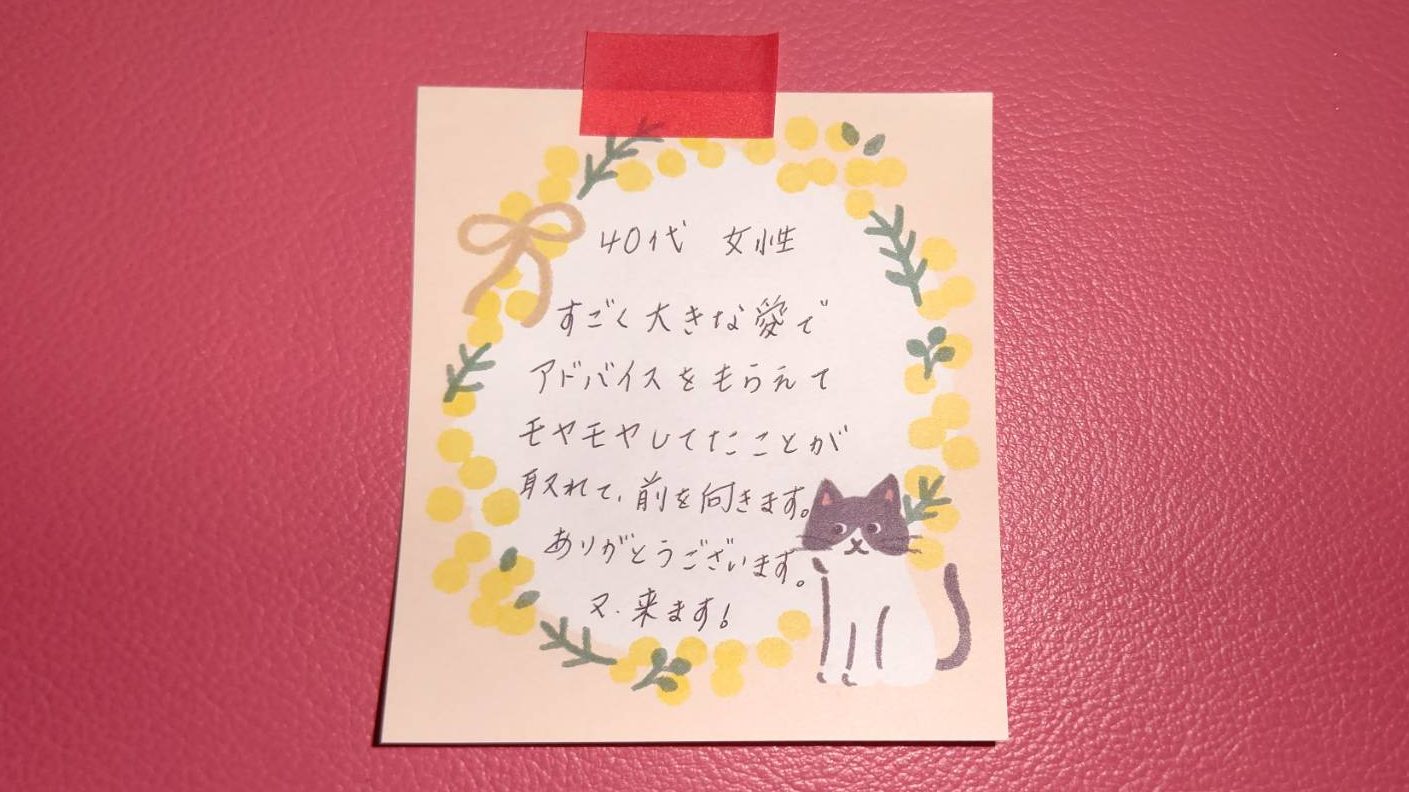 40代 女性
すごく大きな愛で
アドバイスをもらえて
モヤモヤしてたことが
取れて、前を向きます。
ありがとうございます。
又、来ます!